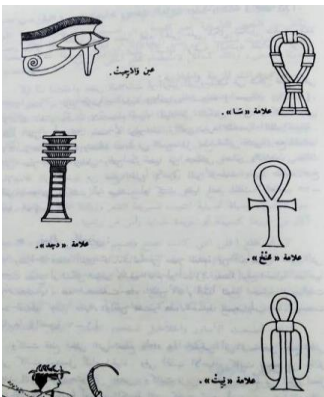 عين وَادچيتْ.
علامة «سَا».
علامة «دجد».
علامة «عَنْخ».
علامة «تِيِتْ».